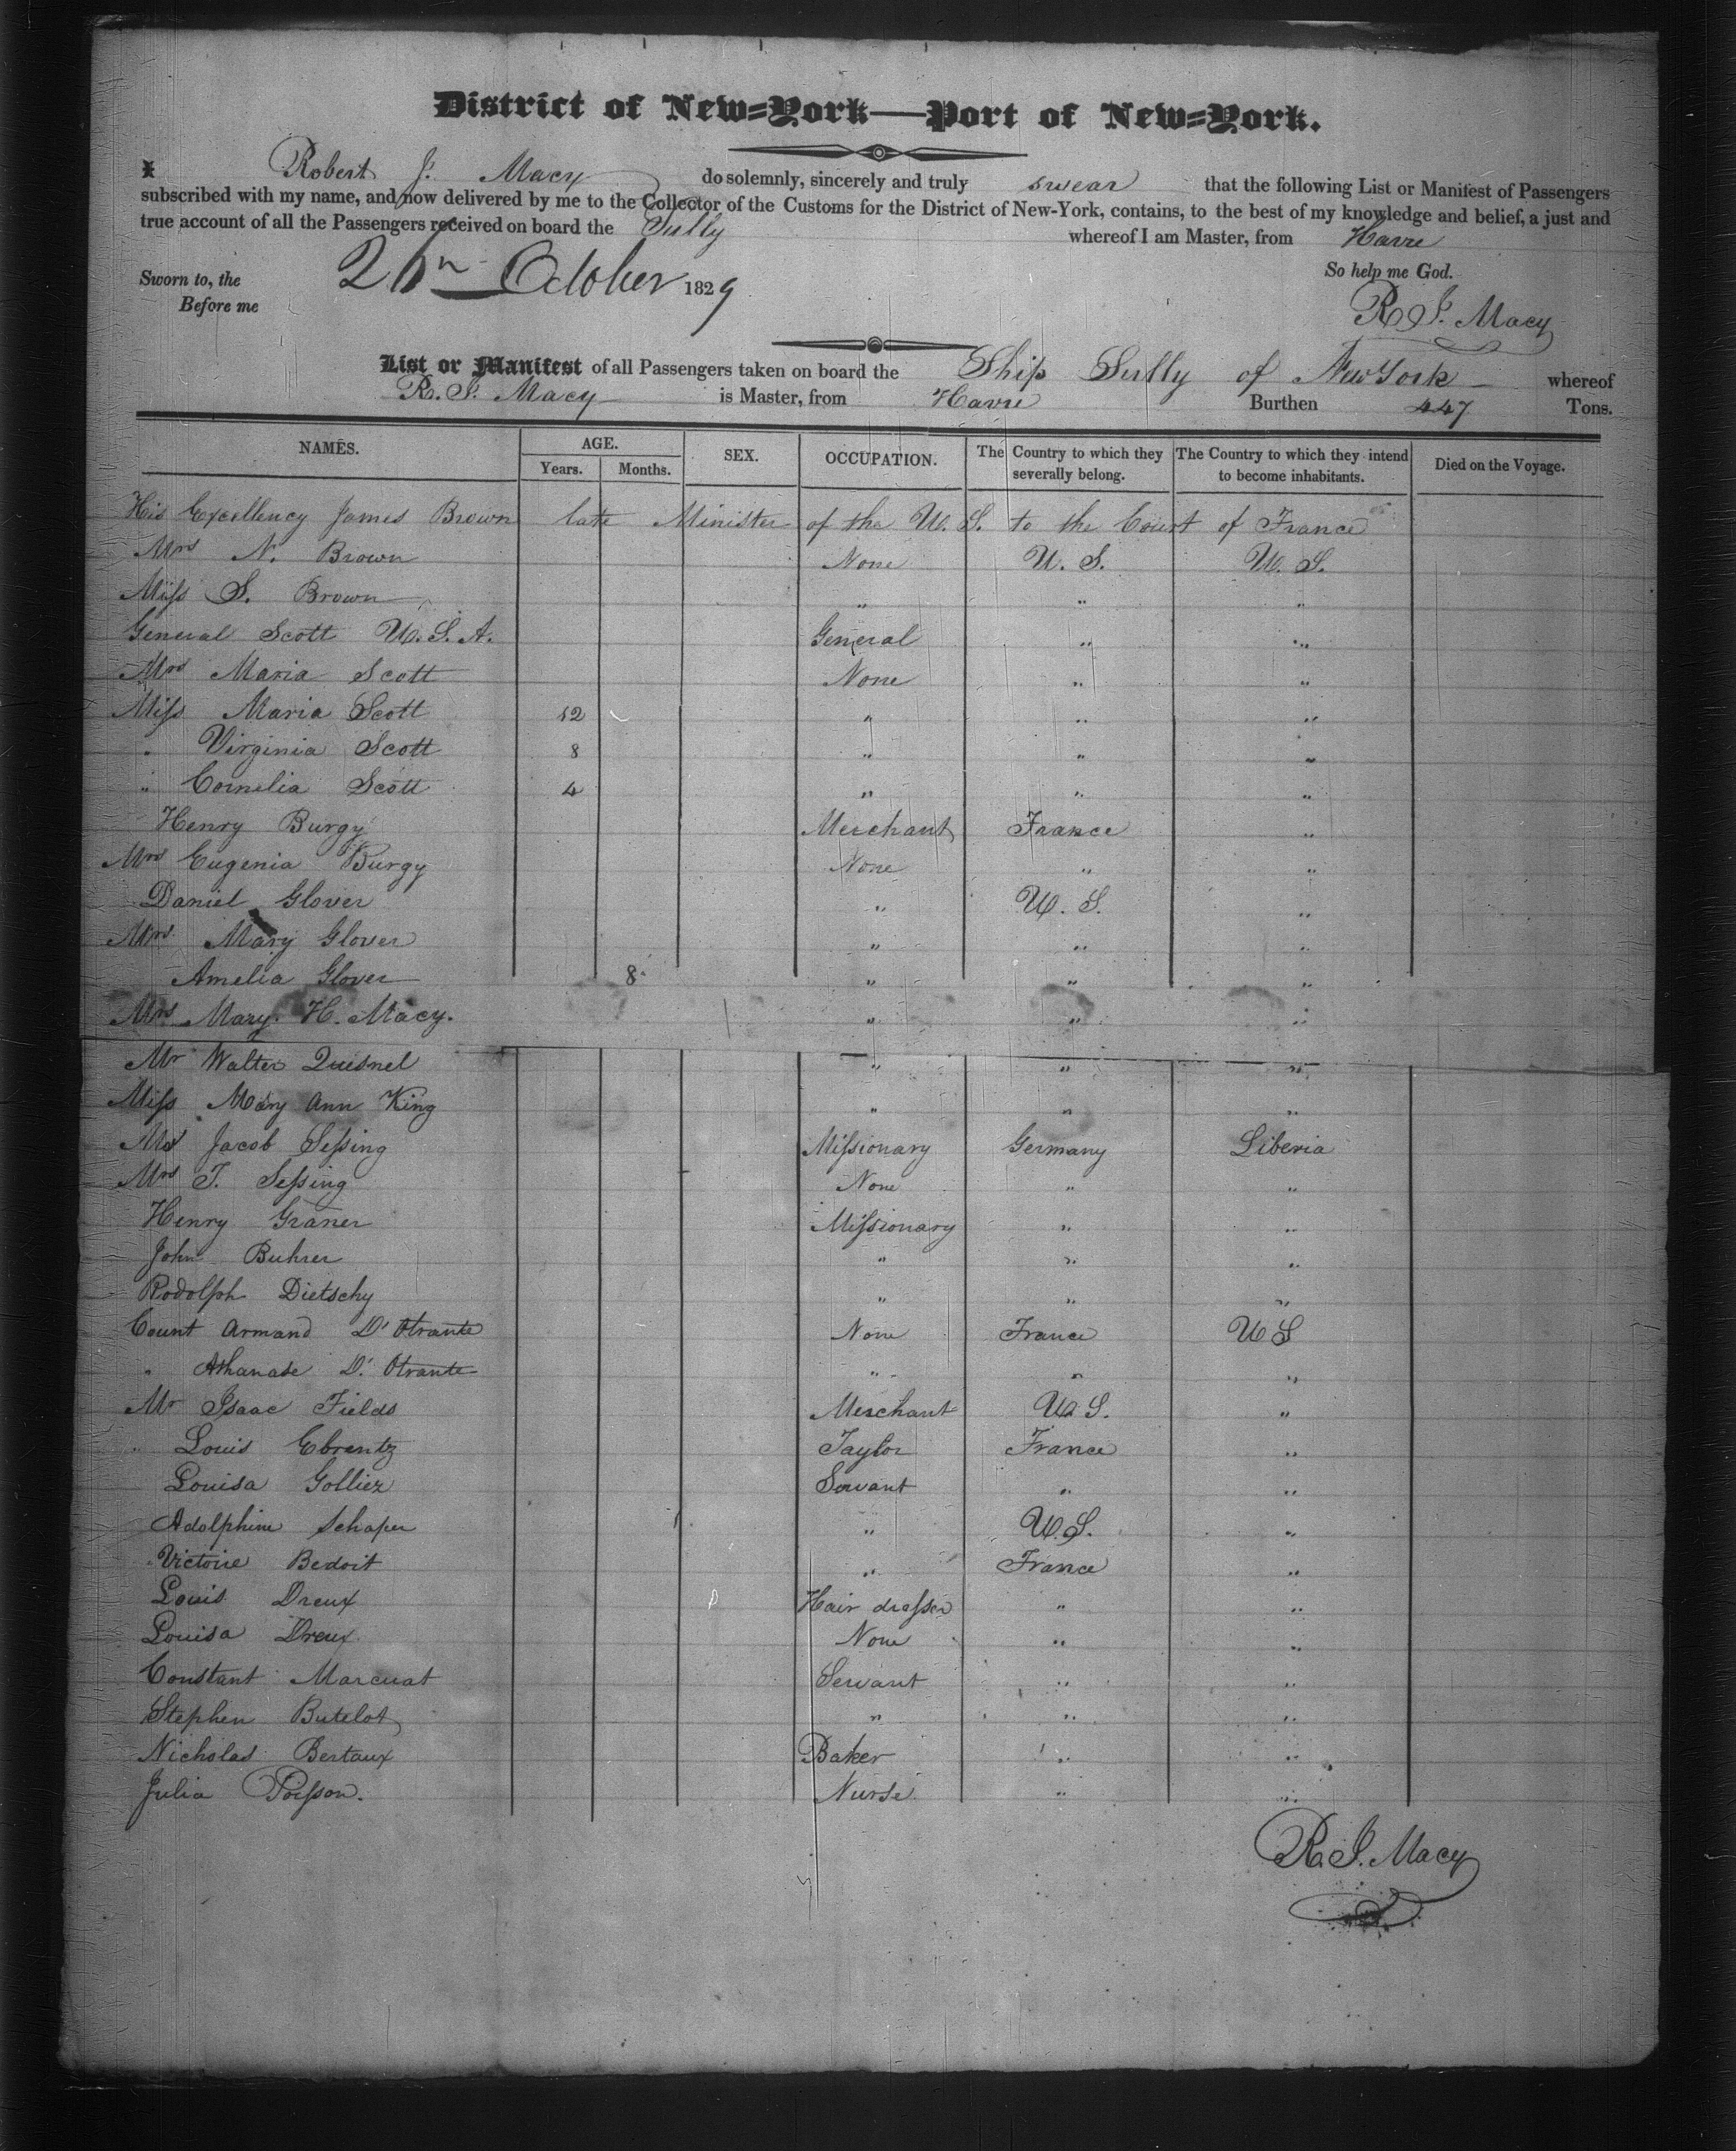 District of New=York—Port of New=York.
I Robert J. Macy do solemnly, sincerely and truly swear that the following List or Manifest of Passengers
subscribed with my name, and now delivered by me to the Collector of the Customs for the District of New-York, contains, to the best of my knowledge and belief, a just and
true account of all the Passengers received on board the Sully whereof I am Master, from Havre
Sworn to, the October 1829 So help me God.
Before me R J. Macy
List or Manifest of all Passengers taken on board the Ship Sully of New York whereof
R. J. Macy is Master, from Havre Burthen 447 Tons.
NAMES. AGE. SEX. OCCUPATION. The Country to which they severally belong. The Country to which they intend to become inhabitants. Died on the Voyage.
Years. Months.
His Excellency James Brown late Minister of the U. S. to the Court of France
Mrs N. Brown None U. S. U. S.
Miss S. Brown " " "
General Scott U. S. A. General " "
Mrs Maria Scott None " "
Miss Maria Scott 12 " " "
" Virginia Scott 8 " " "
" Cornelia Scott 4 " " "
Henry Burgy Merchant France "
Mrs Eugenia Burgy None " "
Daniel Glover " U. S. "
Mrs Mary Glover " " "
Amelia Glover 8 " " "
Mrs Mary H. Macy. " " "
Mr Walter Quesnel " " "
Miss Mary Ann King " " "
Mr Jacob Sessing Missionary Germany Liberia
Mrs T. Sessing None " "
Henry Graner Missionary " "
John Buhrer " " "
Rodolph Dietschy " " "
Count Armand D' Otrante None France U S
" Athanase D' Otrante " " "
Mr Isaac Fields Merchant U S. "
" Louis Ebrentz Taylor France "
Louisa Gollier Servant " "
Adolphine Schaper " U. S. "
Victoire Bedoit " France "
Louis Dreux Hair dresser " "
Louisa Dreux None " "
Constant Marcuat Servant " "
Stephen Butelot " " "
Nicholas Bertaux Baker " "
Julia Poisson. Nurse " "
R. J. Macy